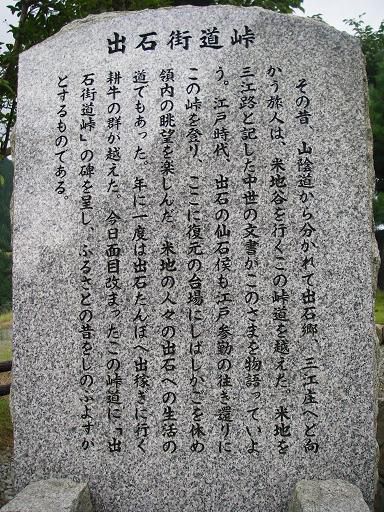 出石街道峠
その昔、山陰道から分かれて出石郷、三江庄へと向
かう旅人は、米地谷を行くこの峠道を越えた。米地を
三江路と記した中世の文書がこのさまを物語っていよ
う。江戸時代、出石の仙石侯も江戸参勤の往き還りに
この峠を登り、ここに復元の台場にしばしかごを休め
領内の眺望を楽しんだ。米地の人々の出石への生活の
道でもあった。年に一度は出石たんぼへ出稼ぎに行く
耕牛の群が越えた。今日面目改まったこの峠道に「出
石街道峠」の碑を呈し、ふるさとの昔をしのぶよすが
とするものである。